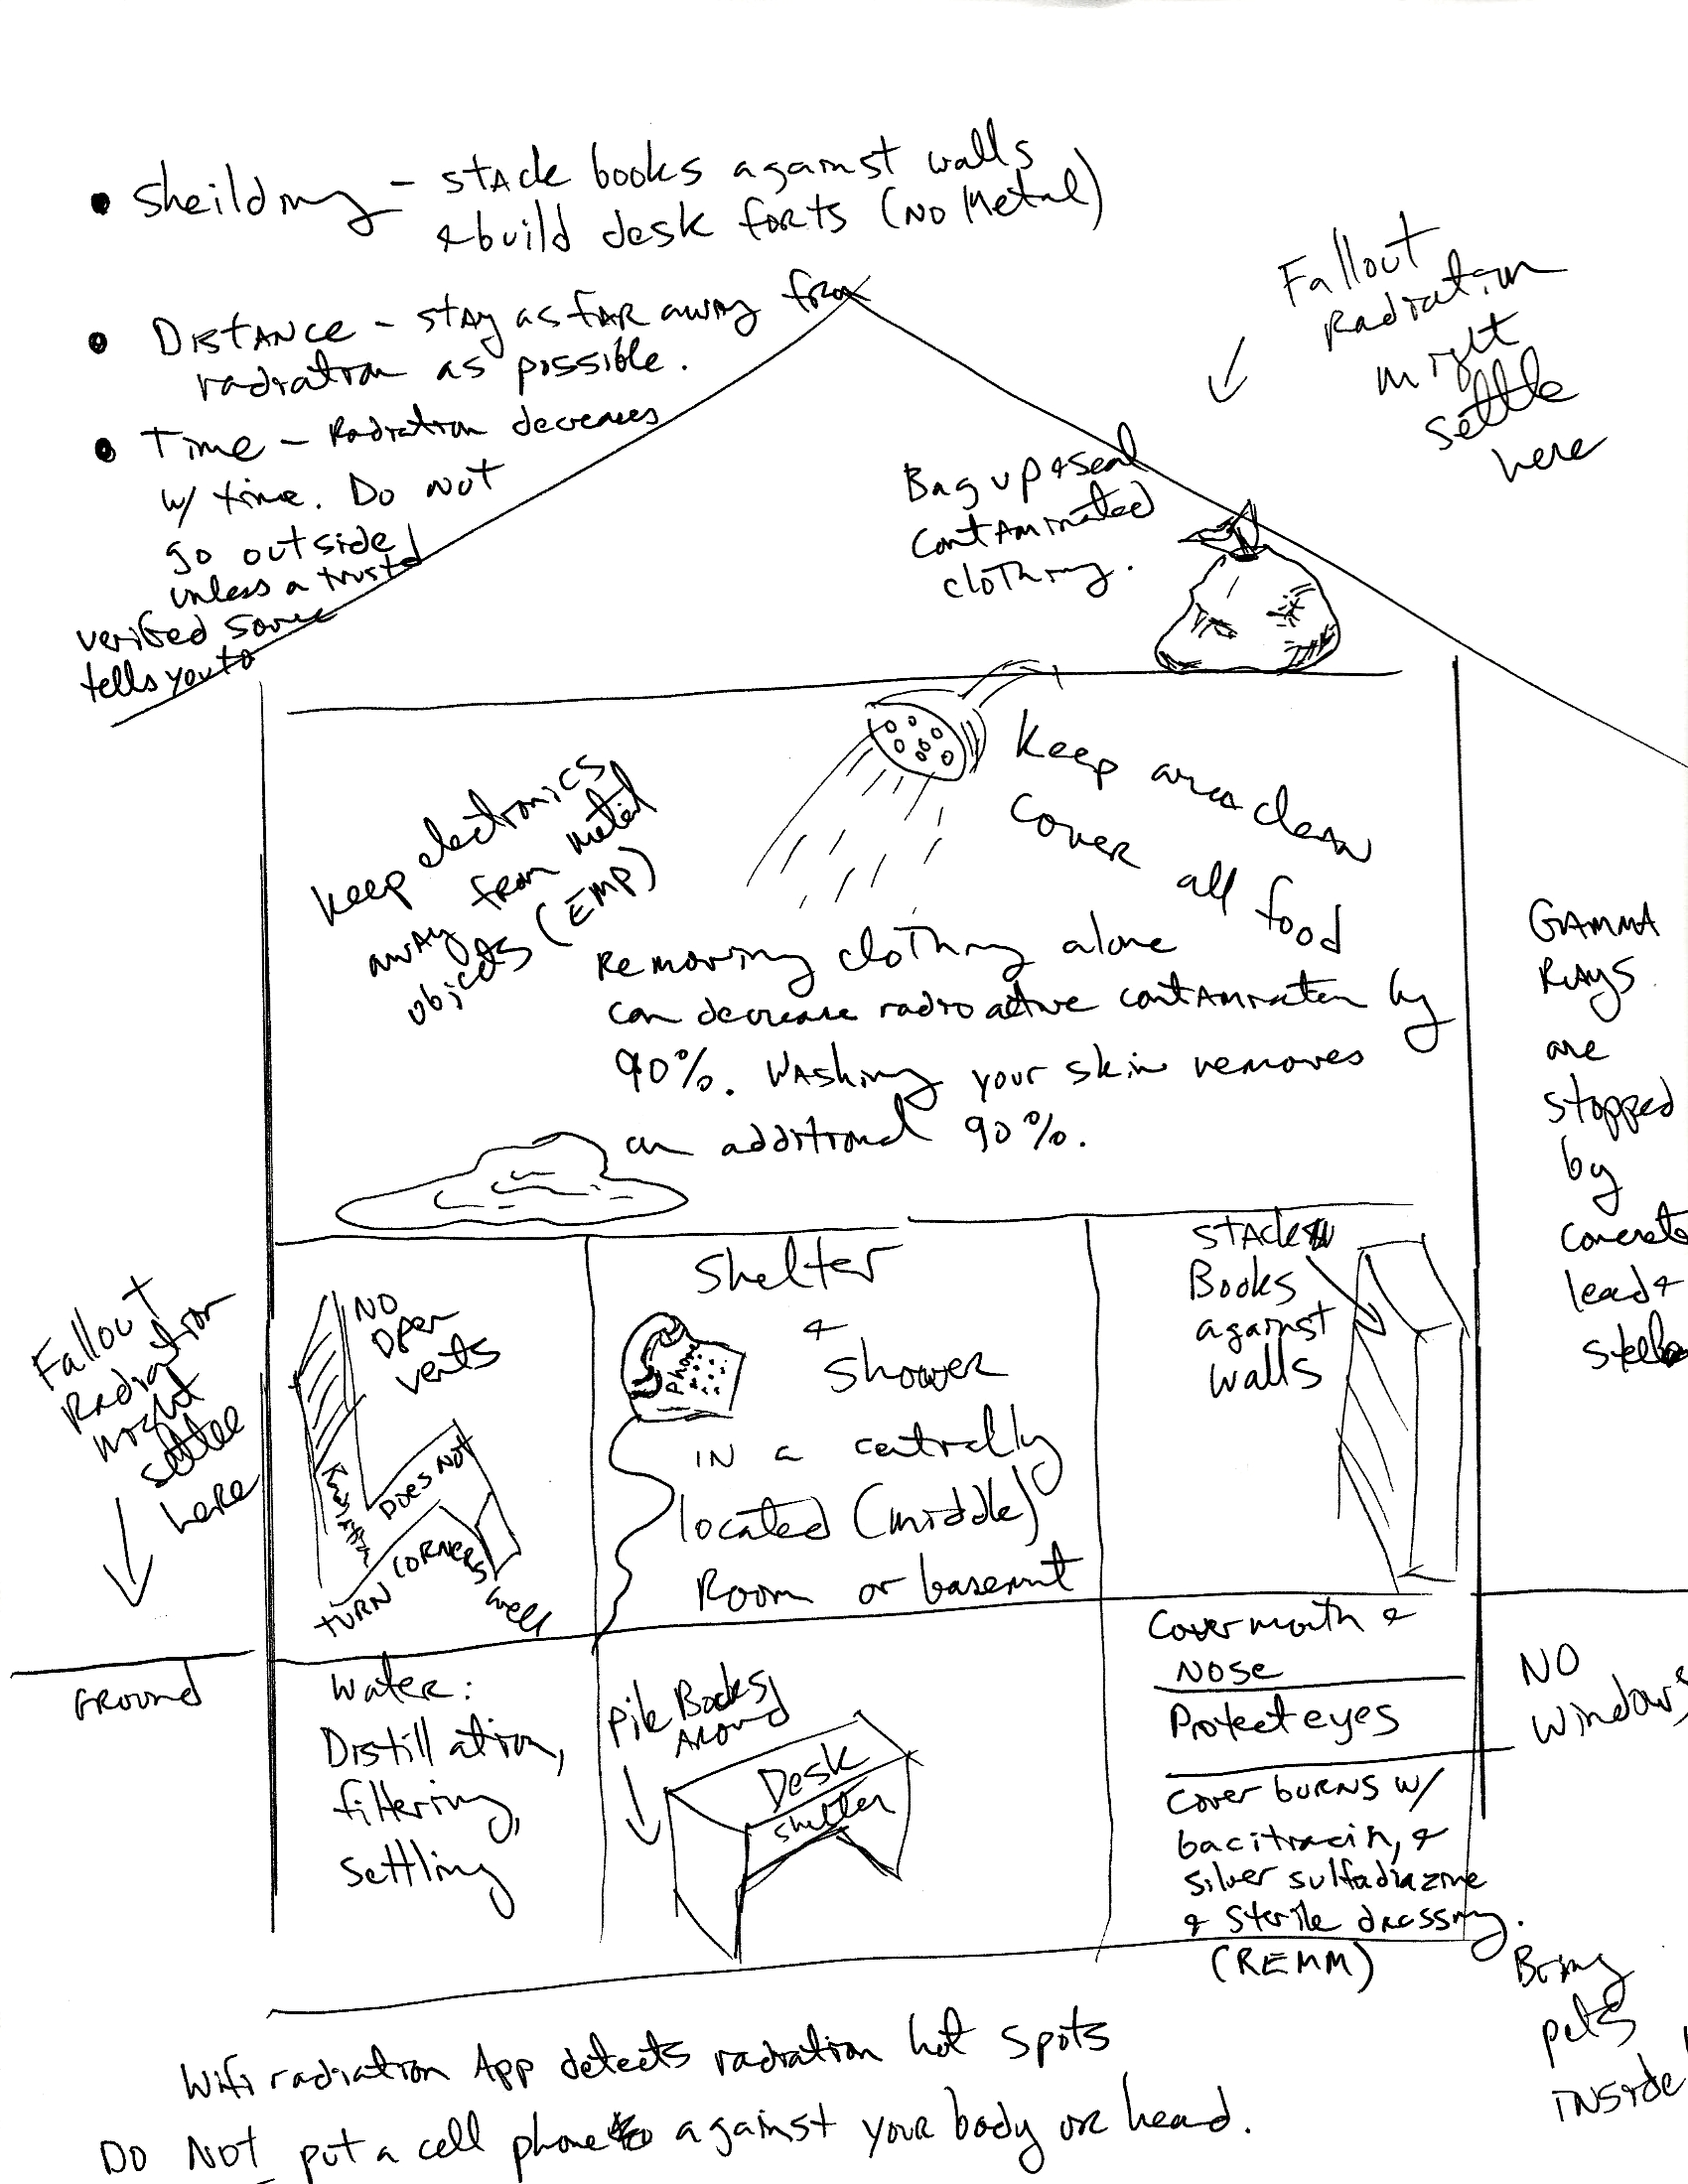 • Sheilding – stack books against walls
& build desk forts (NO Metal)
• Distance – stay as far away from
radiation as possible.
• Time – Radiation decreases
w/ time. Do not
go outside
unless a trusted
verified source
tells you to
Fallout
Radiation
might
settle
here
Bag up & seal
contaminated
clothing.
Keep electronics
away from metal
objects (EMP)
Keep area clean
Cover all food
Removing clothing alone
can decrease radioactive contamination by
90%. Washing your skin removes
an additional 90%.
GAMMA
RAYS
are
stopped
by
concrete
lead &
Fallout
Radiation
might
settle
here
NO
open
vents
Radiation
DOES NOT
TURN CORNERS well
Shelter
&
Shower
IN a centrally
located (middle)
Room or basement
Phone
STACK
Books
against
walls
GROUND
Water:
Distillation,
filtering,
settling
Pile Books
Around
Desk
shelter
Cover mouth &
NOSE
Protect eyes
Cover burns w/
bacitracin, &
silver sulfadiazine
& sterile dressing.
(REMM)
NO
Windows
Bring
pets
inside!
Wifi radiation App detects radiation hot spots
DO NOT put a cell phone against your body or head.